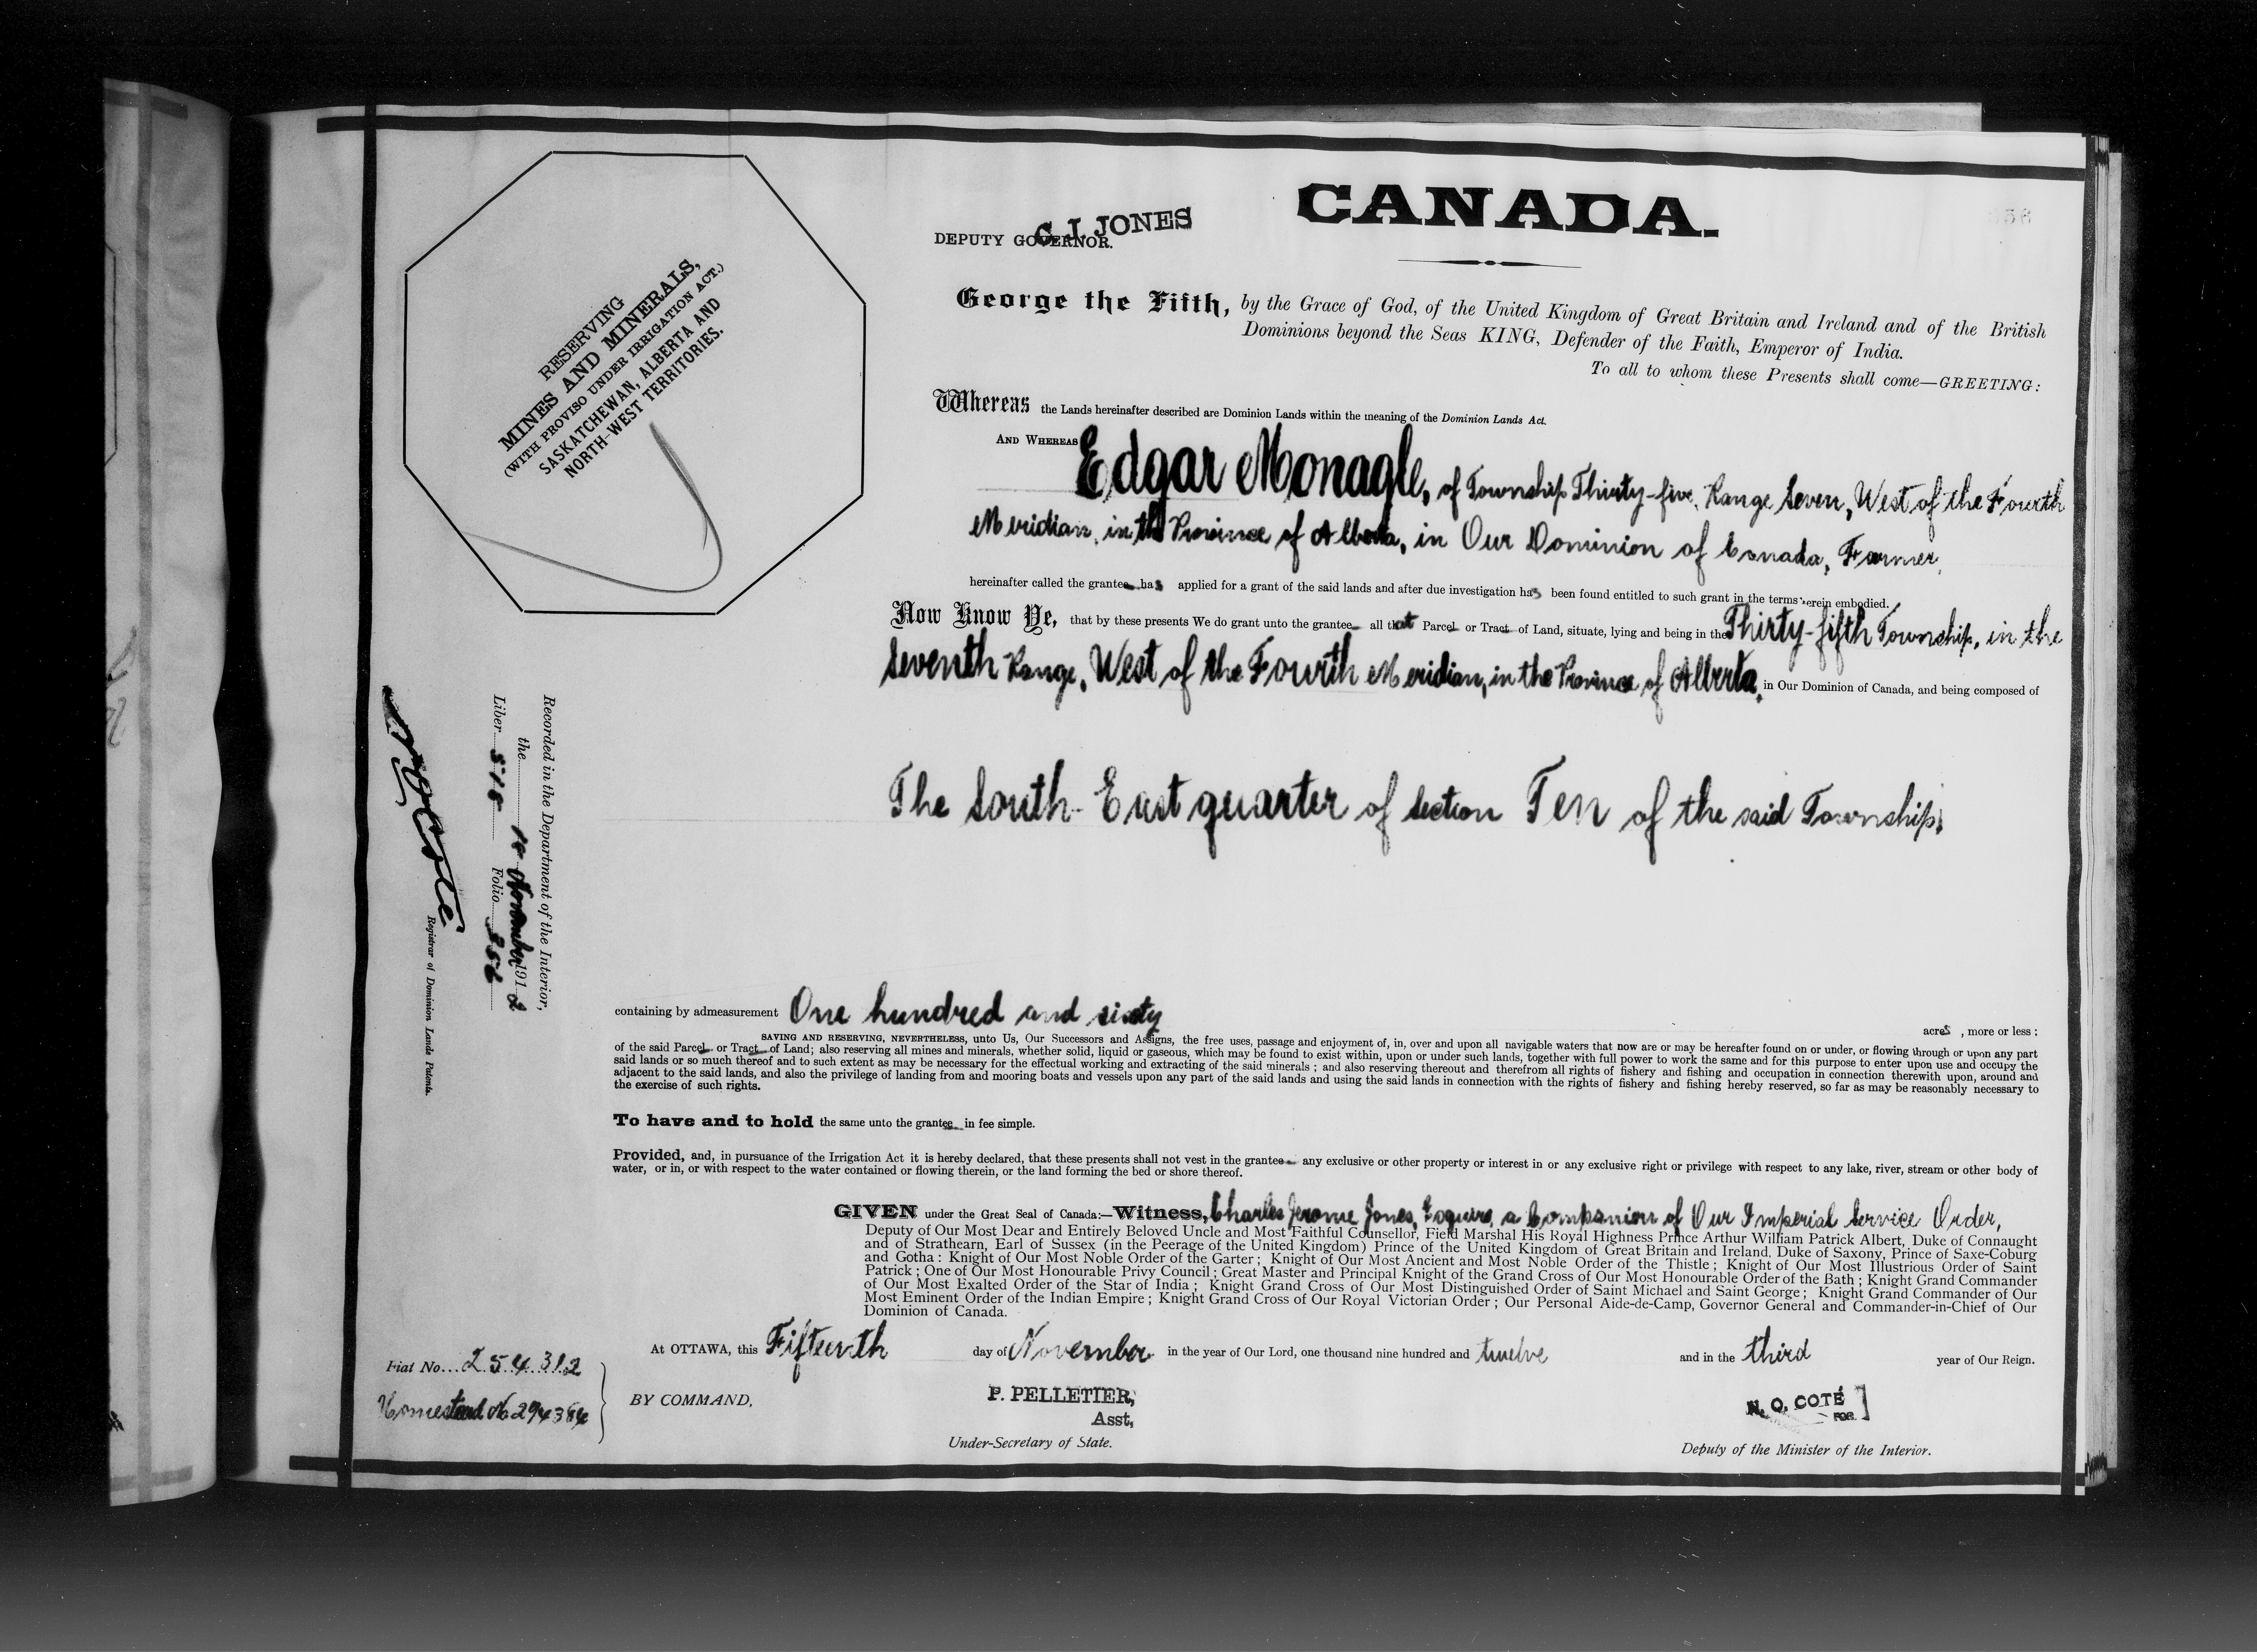 CANADA.
C. J. JONES
DEPUTY GOVERNOR.
56
RESERVING
MINES AND MINERALS,
(WITH PROVISO UNDER IRRIGATION ACT.)
SASKATCHEWAN, ALBERTA AND
NORTH-WEST TERRITORIES.
George the Fifth, by the Grace of God, of the United Kingdom of Great Britain and Ireland and of the British
Dominions beyond the Seas KING, Defender of the Faith, Emperor of India.
To all to whom these Presents shall come—GREETING:
Whereas the Lands hereinafter described are Dominion Lands within the meaning of the Dominion Lands Act.
AND WHEREAS Edgar Monagle, of Township Thirty-five, Range Seven, West of the Fourth
Meridian, in the Province of Alberta, in Our Dominion of Canada, Farmer,
hereinafter called the grantee has applied for a grant of the said lands and after due investigation has been found entitled to such grant in the terms herein embodied.
Now Know Ye, that by these presents We do grant unto the grantee all that Parcel or Tract of Land, situate, lying and being in the Thirty-fifth Township, in the
Seventh Range, West of the Fourth Meridian, in the Province of Alberta, in Our Dominion of Canada, and being composed of
The South-East quarter of Section Ten of the said Township,
Recorded in the Department of the Interior,
the November 1912
Liber 518 Folio 356
N O Coté
Registrar of Dominion Lands Patents.
containing by admeasurement One hundred and sixty acres , more or less ;
SAVING AND RESERVING, NEVERTHELESS, unto Us, Our Successors and Assigns, the free uses, passage and enjoyment of, in, over and upon all navigable waters that now are or may be hereafter found on or under, or flowing through or upon any part
of the said Parcel or Tract of Land; also reserving all mines and minerals, whether solid, liquid or gaseous, which may be found to exist within, upon or under such lands, together with full power to work the same and for this purpose to enter upon use and occupy the
said lands or so much thereof and to such extent as may be necessary for the effectual working and extracting of the said minerals ; and also reserving thereout and therefrom all rights of fishery and fishing and occupation in connection therewith upon, around and
adjacent to the said lands, and also the privilege of landing from and mooring boats and vessels upon any part of the said lands and using the said lands in connection with the rights of fishery and fishing hereby reserved, so far as may be reasonably necessary to
the exercise of such rights.
To have and to hold the same unto the grantee in fee simple.
Provided, and, in pursuance of the Irrigation Act it is hereby declared, that these presents shall not vest in the grantee any exclusive or other property or interest in or any exclusive right or privilege with respect to any lake, river, stream or other body of
water, or in, or with respect to the water contained or flowing therein, or the land forming the bed or shore thereof.
GIVEN under the Great Seal of Canada:—Witness, Charles Jerome Jones, Esquire, a Companion of Our Imperial Service Order,
Deputy of Our Most Dear and Entirely Beloved Uncle and Most Faithful Counsellor, Field Marshal His Royal Highness Prince Arthur William Patrick Albert, Duke of Connaught
and of Strathearn, Earl of Sussex (in the Peerage of the United Kingdom) Prince of the United Kingdom of Great Britain and Ireland, Duke of Saxony, Prince of Saxe-Coburg
and Gotha : Knight of Our Most Noble Order of the Garter ; Knight of Our Most Ancient and Most Noble Order of the Thistle ; Knight of Our Most Illustrious Order of Saint
Patrick ; One of Our Most Honourable Privy Council ; Great Master and Principal Knight of the Grand Cross of Our Most Honourable Order of the Bath ; Knight Grand Commander
of Our Most Exalted Order of the Star of India ; Knight Grand Cross of Our Most Distinguished Order of Saint Michael and Saint George ; Knight Grand Commander of Our
Most Eminent Order of the Indian Empire ; Knight Grand Cross of Our Royal Victorian Order ; Our Personal Aide-de-Camp, Governor General and Commander-in-Chief of Our
Dominion of Canada.
At OTTAWA, this Fifteenth day of November in the year of Our Lord, one thousand nine hundred and twelve and in the third year of Our Reign.
Fiat No... 254312
Homestead No 294384
BY COMMAND,
P. PELLETIER,
Asst,
Under-Secretary of State.
N. O. COTÉ
FOR
Deputy of the Minister of the Interior.